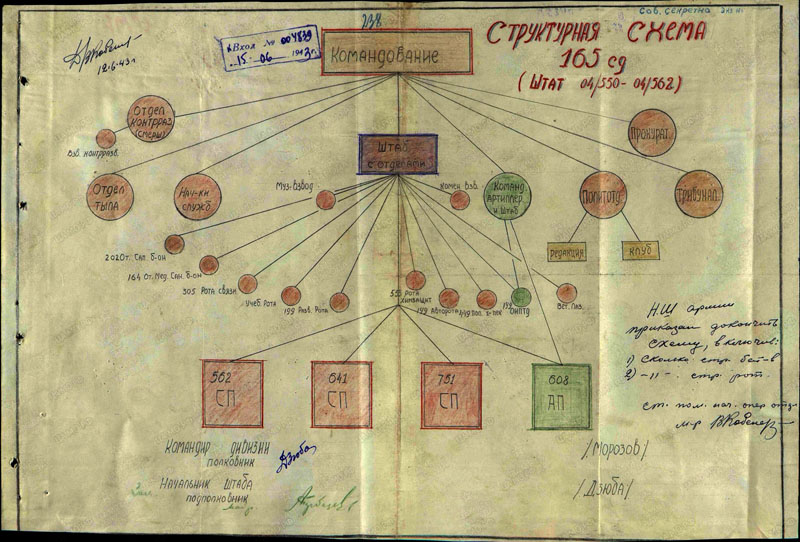 Сов. Секретно
238
Вход № 004839
15. 06 1943г.
12.6.43г
Структурная схема
165 сд
(Штат 04/550-04/562)
Командование
Отдел
контрраз.
(смерш)
Взв. контрразв.
Прокурат.
Штаб
с отделами
Отдел
тыла
Нач-ки
служб
Муз. взвод
Комен. взв.
Команд.
артиллер
и штаб
Политотд
Трибунал
редакция
клуб
202 От. Сап. б-он
164 От. Мед. Сан. б-он
305 Рота связи
Учеб. Рота
199 Разв. Рота
555 Рота
химзащит
199 Авторота
ОИПТД
Вет. Лаз.
562
СП
641
СП
751
СП
608
АП
НШ армии
приказал докончить
схему, включив:
1) Сколько стр. бат-в
2) -"- . стр. рот.
ст. пом. нач. опер. отд.
м-р
Командир дивизии
полковник
/Морозов/
Начальник штаба
подполковник
/Дзюба/